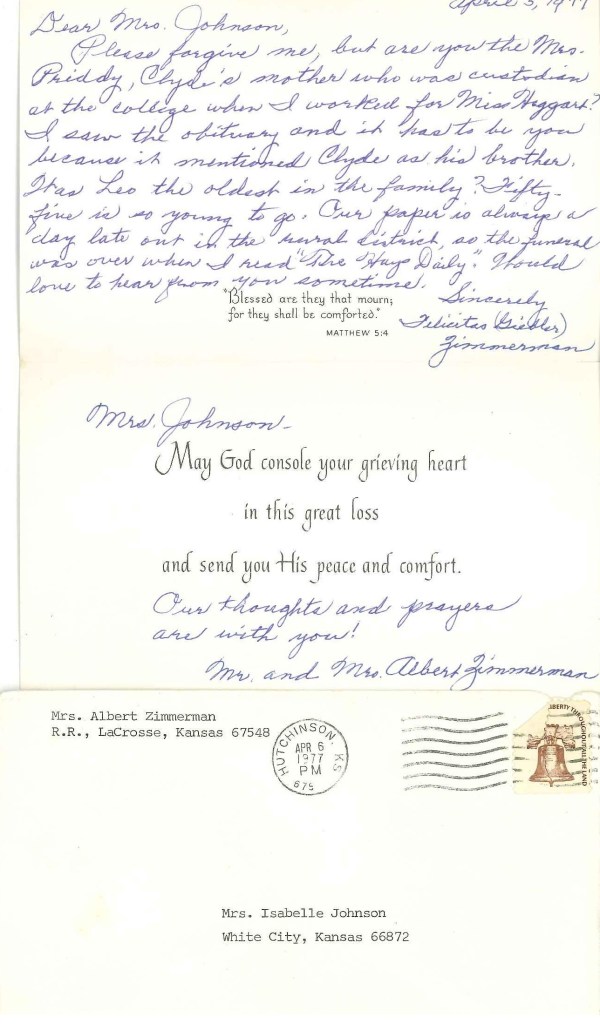 April 5, 1977
Dear Mrs. Johnson,
Please forgive me, but are you the Mrs.
Priddy, Clyde's mother who was custodian
at the college when I worked for Miss Haggart?
I saw the obituary and it has to be you
because it mentioned Clyde as his brother.
Was Leo the oldest in the family? Fifty-
five is so young to go. Our paper is always a
day late out in the rural district, so the funeral
was over when I read "The Hays Daily". Would
love to hear from you sometime.
Sincerely
"Blessed are they that mourn;
for they shall be comforted."
MATTHEW 5:4
Felicitas (Giebler)
Zimmerman
Mrs. Johnson-
May God console your grieving heart
in this great loss
and send you His peace and comfort.
Our thoughts and prayers
are with you!
Mr. and Mrs. Albert Zimmerman
Mrs. Albert Zimmerman
R.R., LaCrosse, Kansas 67548
HUTCHINSON, KS
APR 6
1977
PM
675
LIBERTY THROUGHOUT ALL THE LAND
Mrs. Isabelle Johnson
White City, Kansas 66872